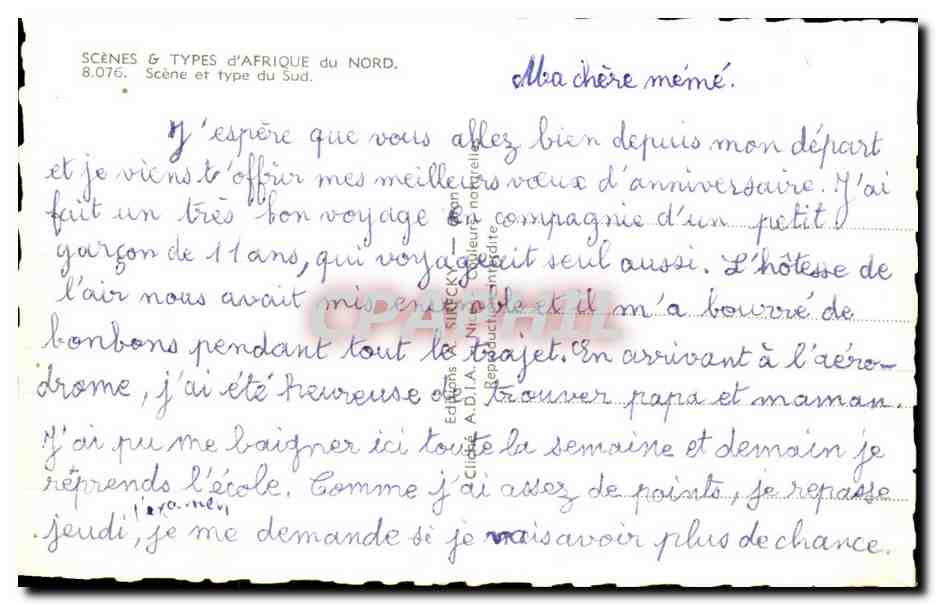 SCÈNES & TYPES d'AFRIQUE du NORD.
8.076. Scène et type du Sud.
Ma chère mémé.
J'espère que vous allez bien depuis mon départ
et je viens t'offrir mes meilleurs vœux d'anniversaire. J'ai
fait un très bon voyage en compagnie d'un petit
garçon de 11 ans, qui voyageait seul aussi. L'hôtesse de
l'air nous avait mis ensemble et il m'a bourré de
bonbons pendant tout le trajet. En arrivant à l'aéro-
drome, j'ai été heureuse de trouver papa et maman.
J'ai pu me baigner ici toute la semaine et demain je
réprends l'école. Comme j'ai assez de points, je repasse
l'examen
jeudi, je me demande si je vais avoir plus de chance.
Editions A. SIRECKY —
Cliché A.D.I.A. Nice Couleurs naturelles
Reproduction interdite
CPAPHIL